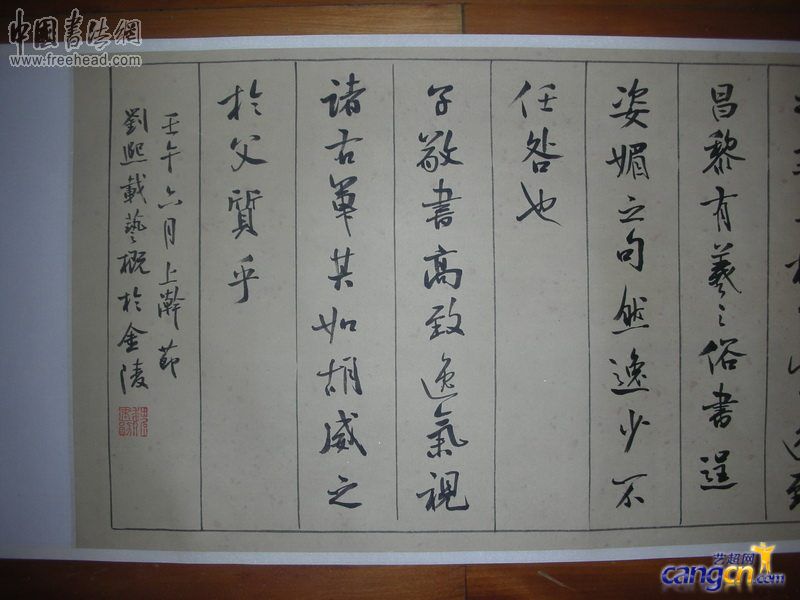 昌黎有羲之俗書逞
姿媚之句然逸少不
任咎也
子敬書高致逸氣視
諸右軍其如胡威之
於父質乎
壬午六月上澣節
劉熙載藝概於金陵
中國書法網
www.freehead.com
艺超网
cangcn.com